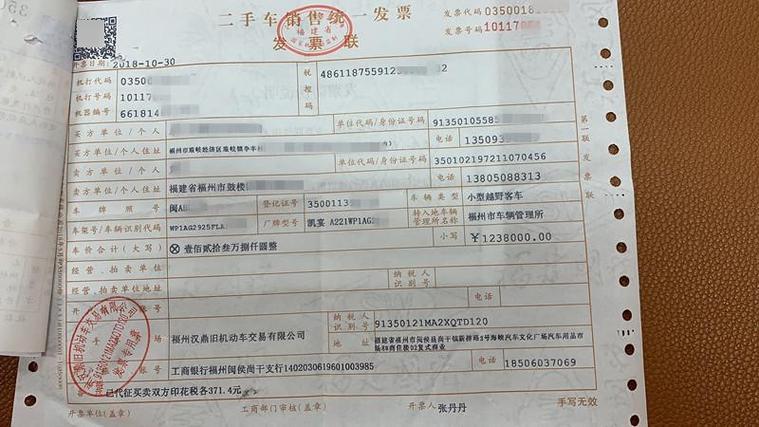 二手车销售统一发票
发票联
福建省
发票代码 0350018
发票号码 10117
开票日期 2018-10-30
机打代码 0350
机打号码 10117
机器编号 661814
税控码 48611875591235 2
买方单位/个人 单位代码/身份证号码 91350105585
买方单位/个人住址 电话 13509
卖方单位/个人 单位代码/身份证号码 350102197211070456
卖方单位/个人住址 福建省福州市鼓楼 电话 13805088313
车牌照号 闽A 登记证号 3500113 车辆类型 小型越野客车
车架号/车辆识别代码 WP1AG2925FLA 厂牌型号 凯宴 A221WP1AG2 转入地车辆管理所名称 福州市车辆管理所
车价合计(大写) ⊗ 壹佰贰拾叁万捌仟圆整 小写 ¥1238000.00
经营、拍卖单位
经营、拍卖单位地址 纳税人识别号 电话
福州汉鼎旧机动车交易有限公司 纳税人识别号 91350121MA2XQTD120
地址
工商银行福州闽侯尚干支行1402030619601003985 电话 18506037069
已代征买卖双方印花税各371.4元
开票单位(盖章) 工商部门审核(盖章) 开票人 张丹丹 手写无效
第一联 发票联